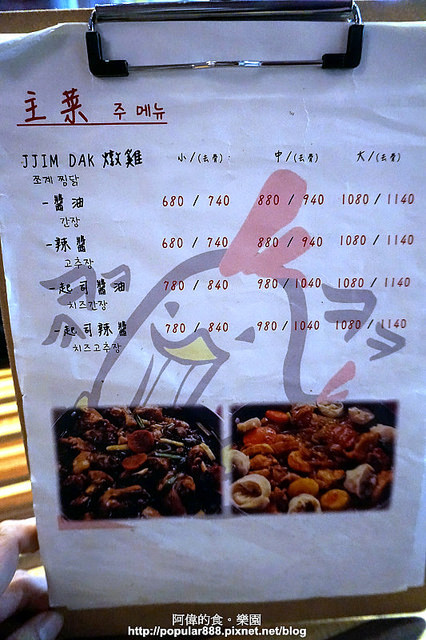 主菜 주 메뉴
JJIM DAK 燉雞 小/(去骨) 中/(去骨) 大/(去骨)
쪼계 찜닭
-醬油 680 / 740 880 / 940 1080 / 1140
간장
-辣醬 680 / 740 880 / 940 1080 / 1140
고추장
-起司醬油 780 / 840 980 / 1040 1080 / 1140
치즈간장
-起司辣醬 780 / 840 980 / 1040 1080 / 1140
치즈고추장
阿偉的食。樂園
http://popular888.pixnet.net/blog